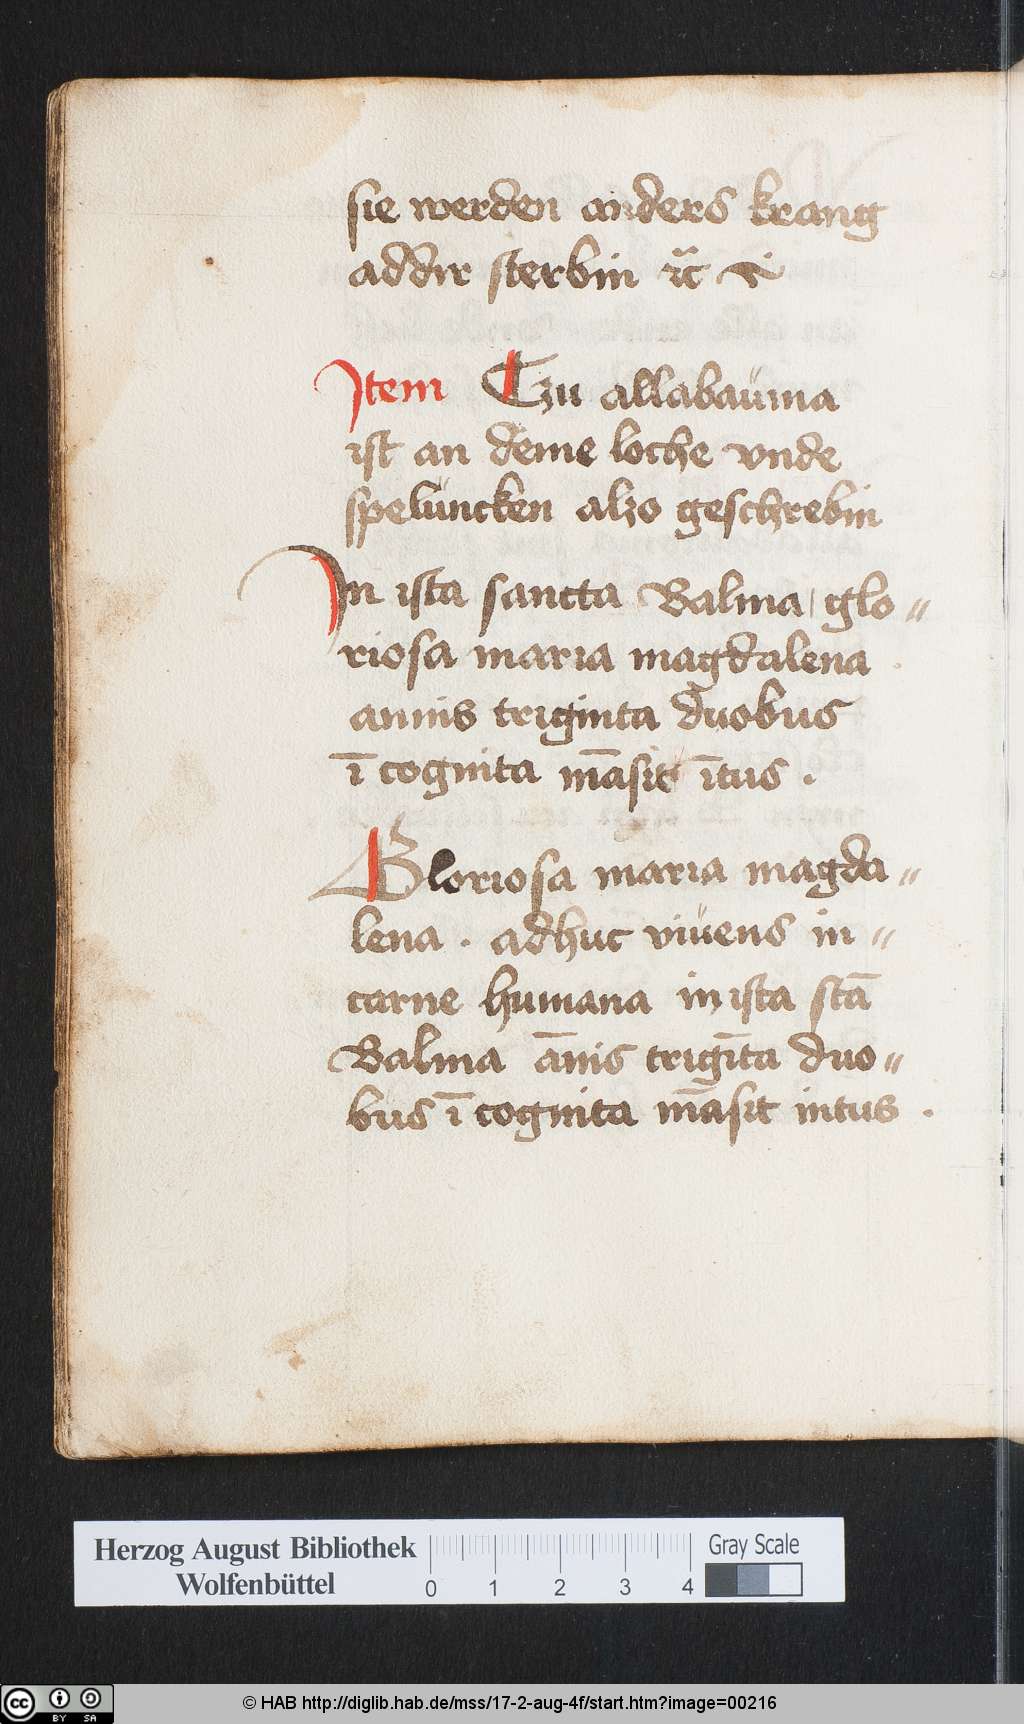 sie werden anders krang
addir sterbin ⁊c̃
Item Czu allabaüma
ist an deme loche vnde
spelüncken alzo geschrebin
In ista sancta Balma / glo〃
riosa maria magdalena
annis triginta duobus
ī cognita māsit ītus .
Gloriosa maria magda〃
lena . adhuc viüens in〃
carne humana in ista sctā
Balma ānis trigīta duo〃
bus ī cognita māsit intus .
Herzog August Bibliothek
Wolfenbüttel
0 1 2 3 4
Gray Scale
cc BY SA
© HAB http://diglib.hab.de/mss/17-2-aug-4f/start.htm?image=00216